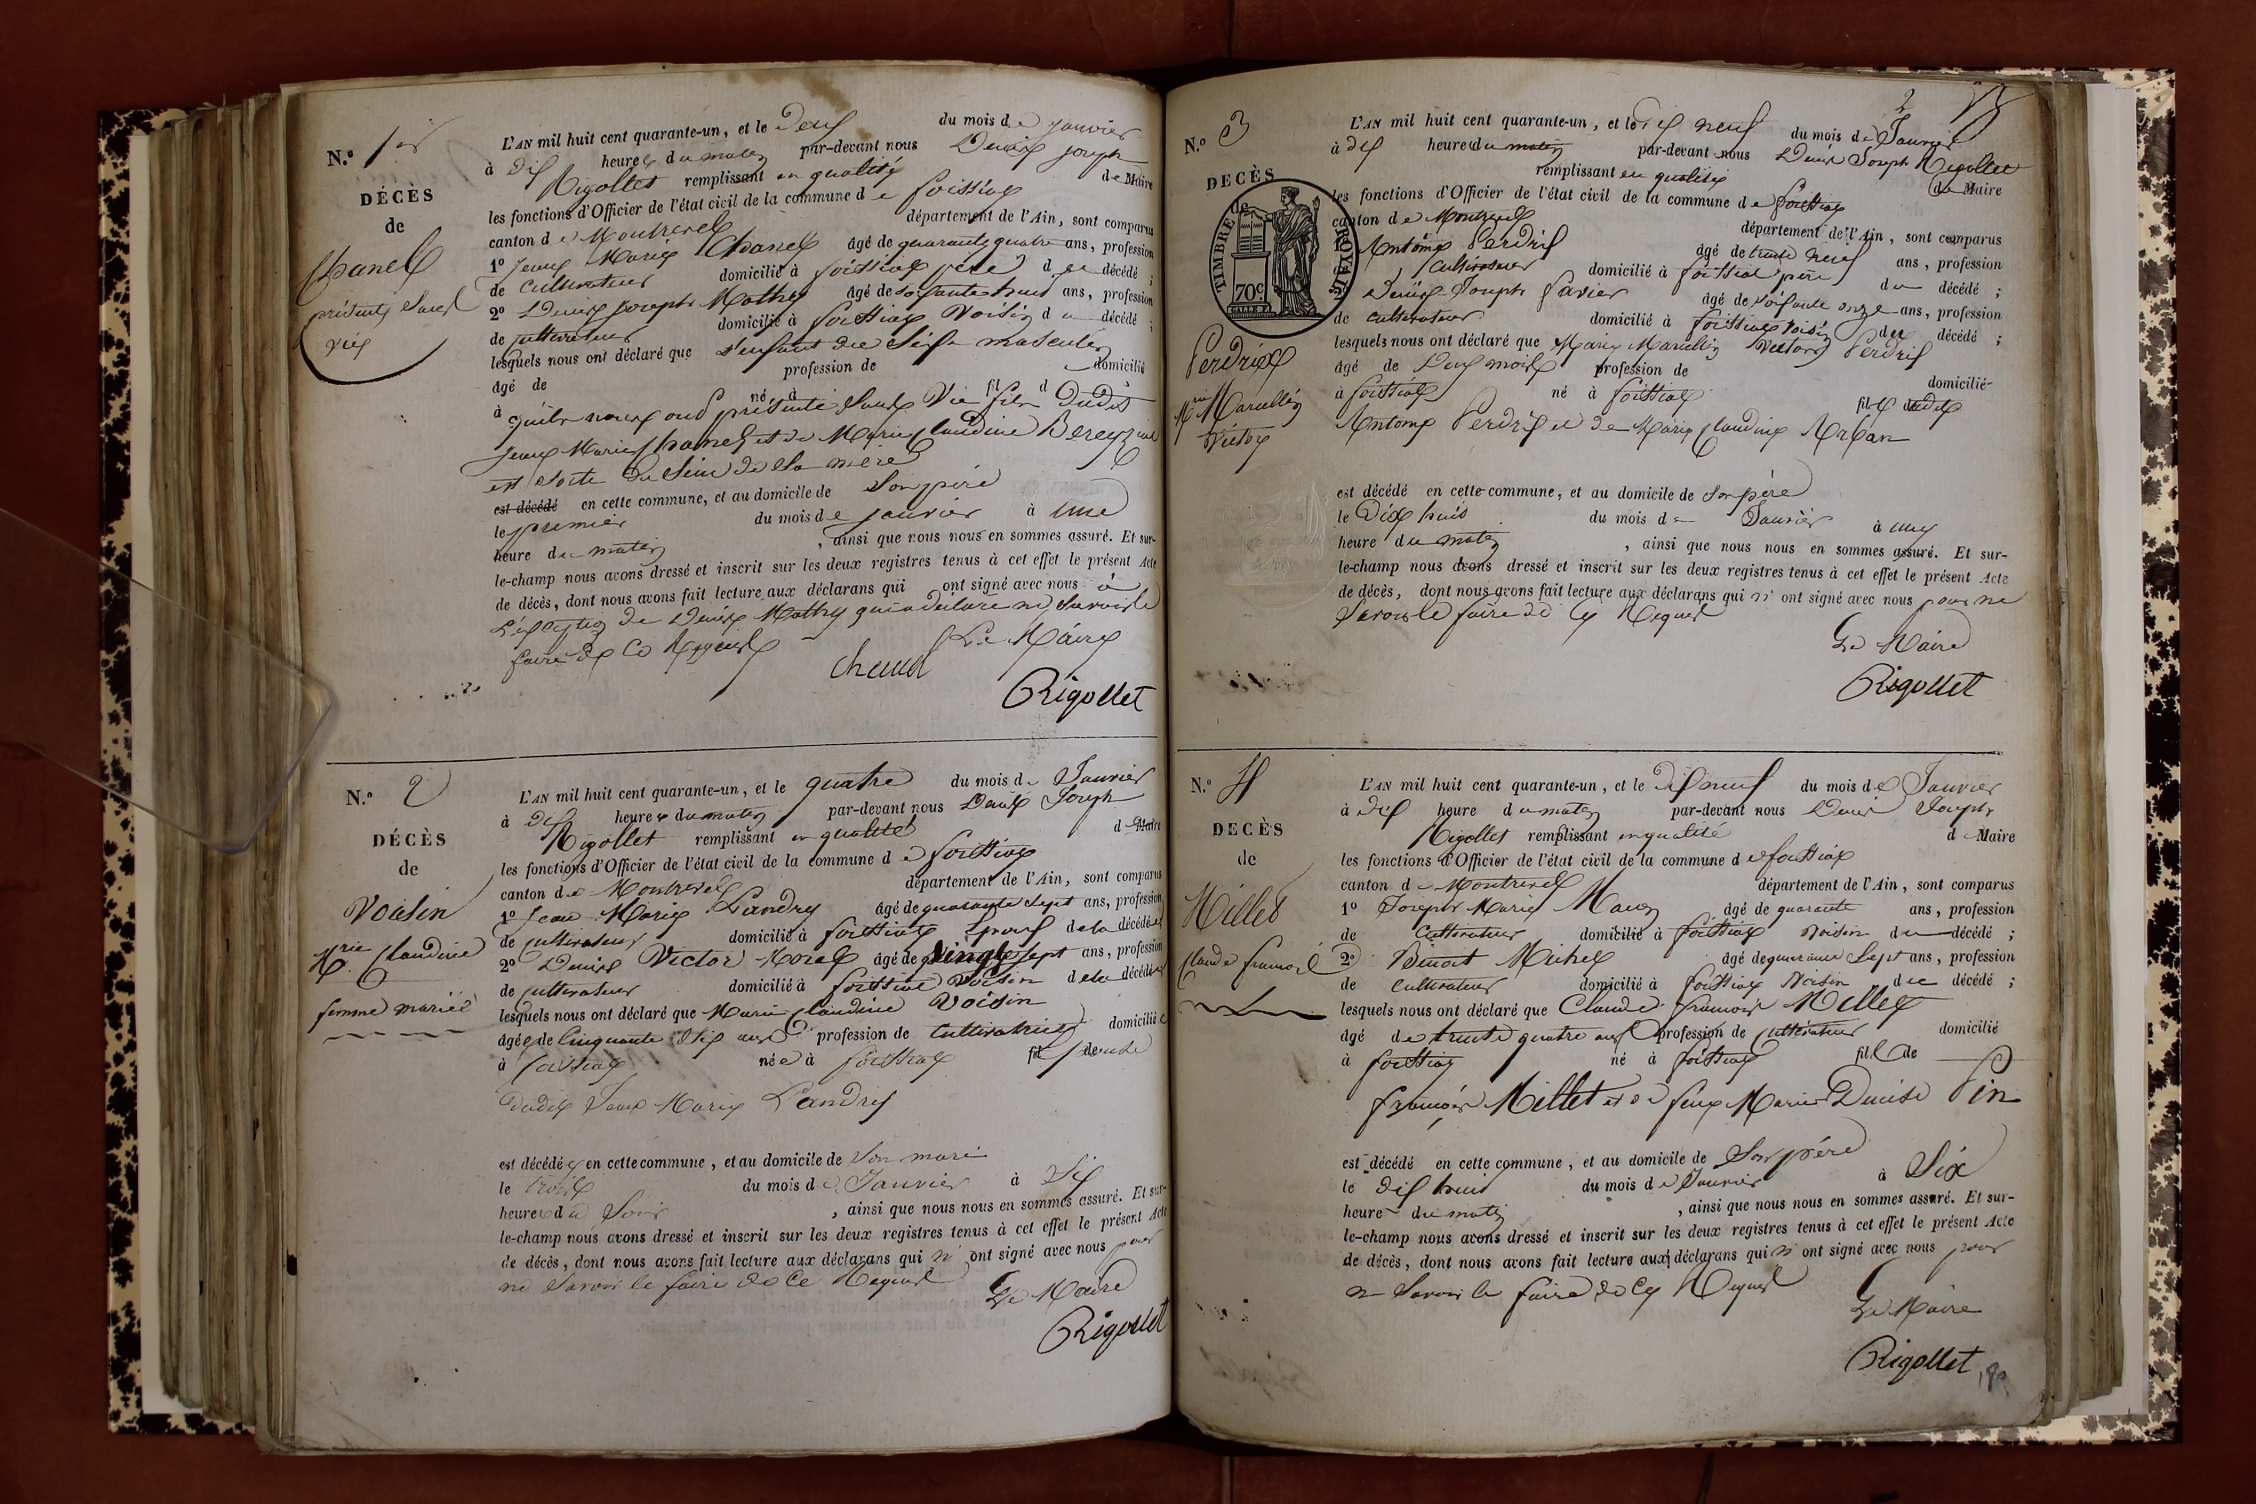 N.o 1er
DÉCÈS
de
Chanel
présenté sans
vie
L'AN mil huit cent quarante-un, et le Deux du mois de janvier
à dix heures du matin par-devant nous Denis joseph
Rigollet remplissant en qualité de Maire
les fonctions d'Officier de l'état civil de la commune de foissiat
canton de Montrevel département de l'Ain, sont comparus
1o Jean Marie Chanel âgé de quarante quatre ans, profession
de cultivateur domicilié à foissiat père du décédé ;
2o Denis joseph Mathy âgé de soixante huit ans, profession
de cultivateur domicilié à foissiat voisin du décédé ;
lesquels nous ont déclaré que l'enfant du sexe masculin
âgé de profession de domicilié
à né à fil d
qu'ils nous ont présenté sans vie fils dudit
jean Marie Chanel et de Marie Claudine Bereyziat
est sorti du sein de sa mère
est décédé en cette commune, et au domicile de son père
le premier du mois de janvier à une
heure du matin, ainsi que nous nous en sommes assuré. Et sur-
le-champ nous avons dressé et inscrit sur les deux registres tenus à cet effet le présent Acte
de décès, dont nous avons fait lecture aux déclarans qui ont signé avec nous à
l'exception de Denis Mathy qui a déclaré ne savoir le
faire de ce Requis
Le Maire
chanel
Rigollet
N.o 2
DÉCÈS
de
Voisin
Mrie Claudine
femme mariée
L'AN mil huit cent quarante-un, et le quatre du mois de Janvier
à dix heures du matin par-devant nous Denis Joseph
Rigollet remplissant en qualité de Maire
les fonctions d'Officier de l'état civil de la commune de foissiat
canton de Montrevel département de l'Ain, sont comparus
1o Jean Marie Landry âgé de quarante sept ans, profession
de cultivateur domicilié à foissiat époux de la décédée
2o Denis Victor Morel âgé de vingt sept ans, profession
de cultivateur domicilié à foissiat voisin de la décédée
lesquels nous ont déclaré que Marie Claudine Voisin
âgée de Cinquante six ans profession de Cultivatrice domiciliée
à foissiat née à foissiat fil épouse
Dudit Jean Marie Landry
est décédée en cette commune, et au domicile de son mari
le trois du mois de Janvier à Six
heures du soir, ainsi que nous nous en sommes assuré. Et sur-
le-champ nous avons dressé et inscrit sur les deux registres tenus à cet effet le présent Acte
de décès, dont nous avons fait lecture aux déclarans qui n'ont signé avec nous pour
ne savoir le faire de ce Requis
Le Maire
Rigollet
2
N.o 3
DECÈS
de
TIMBRE ROYAL
70c
Perdrix
Mrie Marcellin
Victor
L'AN mil huit cent quarante-un, et le dix neuf du mois de Janvier
à dix heures du matin par-devant nous Denis Joseph Rigollet
remplissant en qualité de Maire
les fonctions d'Officier de l'état civil de la commune de foissiat
canton de Montrevel département de l'Ain, sont comparus
Antoine Perdrix âgé de trente neuf ans, profession
cultivateur domicilié à foissiat père du décédé ;
Denis Joseph favier âgé de soixante onze ans, profession
de cultivateur domicilié à foissiat voisin du décédé ;
lesquels nous ont déclaré que Marie Marcellin Victor Perdrix
âgé de Deux mois profession de domicilié
à foissiat né à foissiat fils dudit
Antoine Perdrix et de Marie Claudine Arban
est décédé en cette commune, et au domicile de son père
le Dix huit du mois de Janvier à une
heure du matin, ainsi que nous nous en sommes assuré. Et sur-
le-champ nous avons dressé et inscrit sur les deux registres tenus à cet effet le présent Acte
de décès, dont nous avons fait lecture aux déclarans qui n'ont signé avec nous pour ne
savoir le faire de ce Requis
Le Maire
Rigollet
N.o 4
DECÈS
de
Millet
Claude françois
L'AN mil huit cent quarante-un, et le dix neuf du mois de Janvier
à dix heure du matin par-devant nous Denis Joseph
Rigollet remplissant en qualité de Maire
les fonctions d'Officier de l'état civil de la commune de foissiat
canton de Montrevel département de l'Ain, sont comparus
1o Joseph Marie âgé de quarante ans, profession
de Cultivateur domicilié à foissiat voisin du décédé ;
2o Benoit Michel âgé de quarante sept ans, profession
de cultivateur domicilié à foissiat voisin du décédé ;
lesquels nous ont déclaré que Claude françois Millet
âgé de trente quatre ans profession de cultivateur domicilié
à foissiat né à foissiat fils de
françois Millet et de feue Marie Denise Pin
est décédé en cette commune, et au domicile de son père
le dix huit du mois de Janvier à Six
heure du matin, ainsi que nous nous en sommes assuré. Et sur-
le-champ nous avons dressé et inscrit sur les deux registres tenus à cet effet le présent Acte
de décès, dont nous avons fait lecture aux déclarans qui n'ont signé avec nous pour
ne savoir le faire de ce Requis
Le Maire
Rigollet